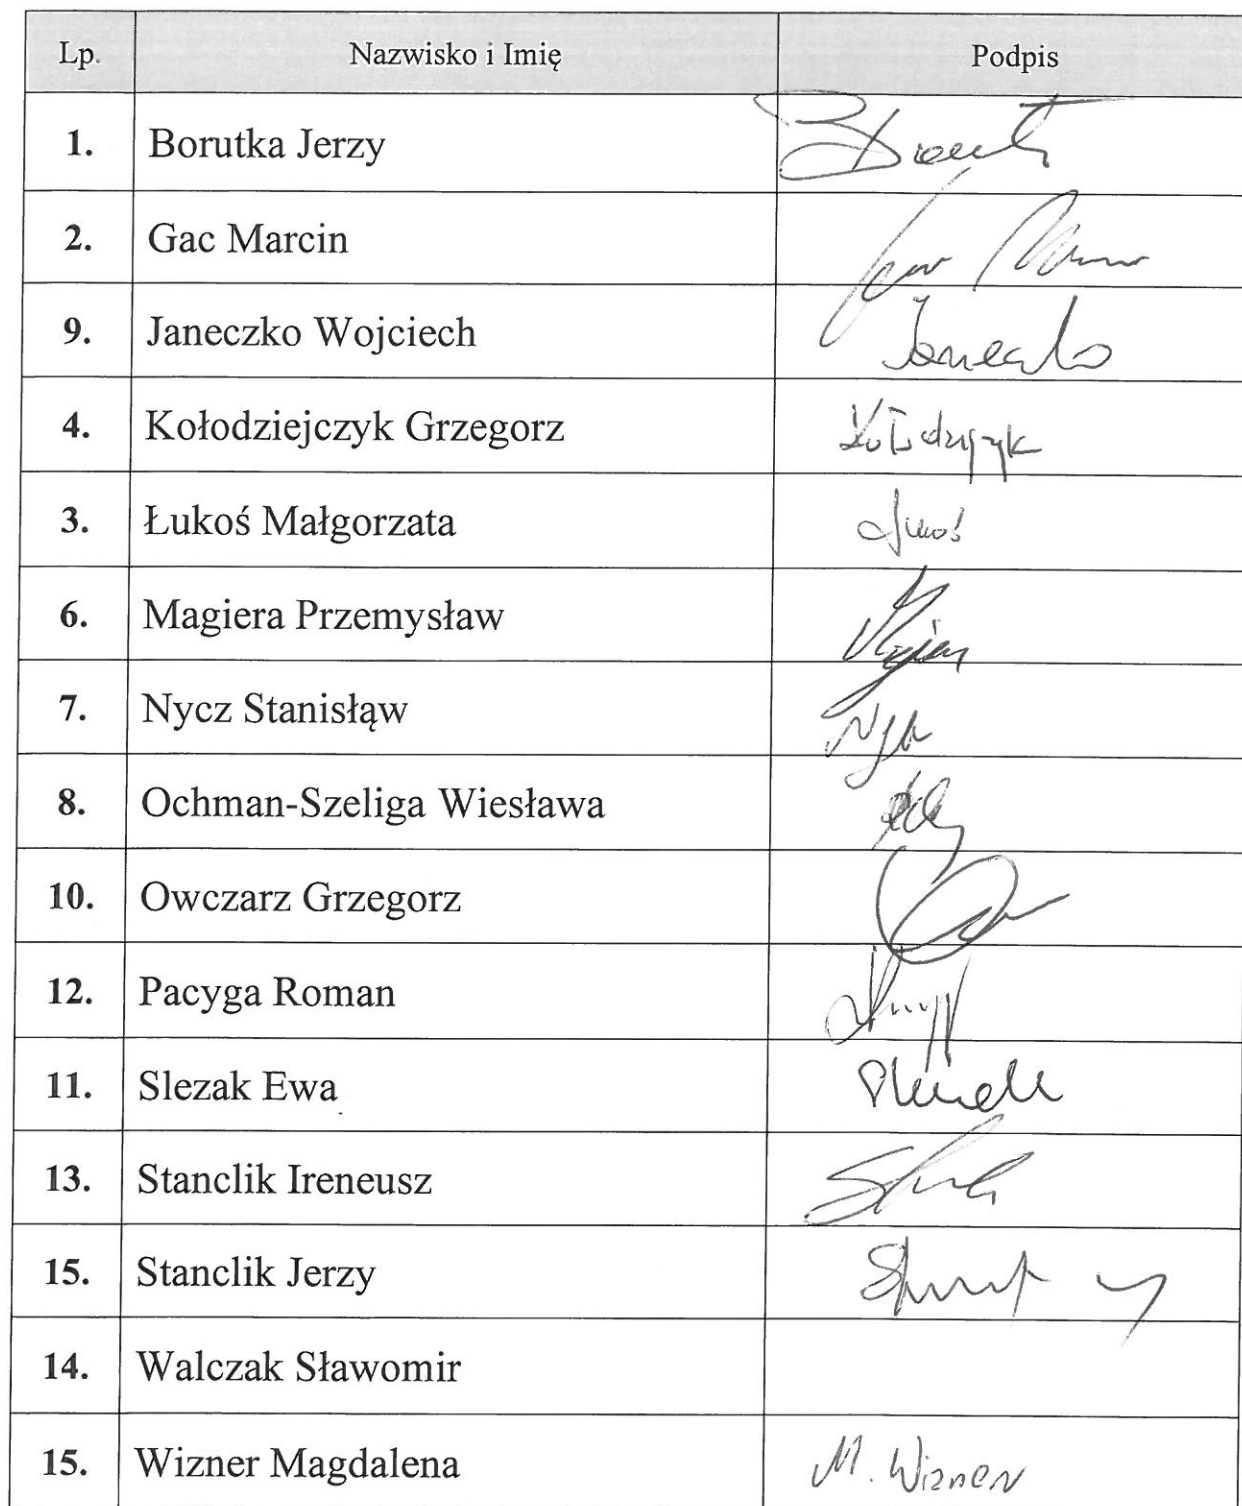 Lp. Nazwisko i Imię Podpis
1. Borutka Jerzy
2. Gac Marcin
9. Janeczko Wojciech
4. Kołodziejczyk Grzegorz Kołodziejczyk
3. Łukoś Małgorzata Łukoś
6. Magiera Przemysław
7. Nycz Stanisłąw
8. Ochman-Szeliga Wiesława
10. Owczarz Grzegorz
12. Pacyga Roman
11. Slezak Ewa
13. Stanclik Ireneusz
15. Stanclik Jerzy
14. Walczak Sławomir
15. Wizner Magdalena M. Wizner